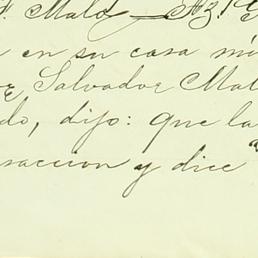 F. Malo — Az! G
en su casa mi
Salvador Mal
do, dijo: que la
saccion y dice "